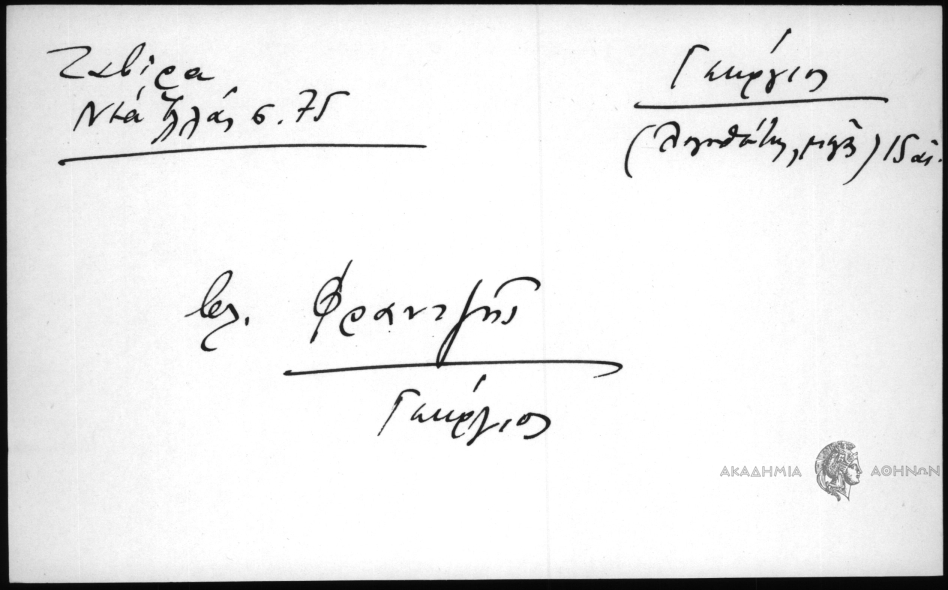 Ζαβίρα
Νέα Ἑλλάς σ. 75
Γεώργιος
(Λογοθέτης, μέγας) 15 αἰ.
βλ. Φραντζῆς
Γεώργιος
ΑΚΑΔΗΜΙΑ ΑΘΗΝΩΝ